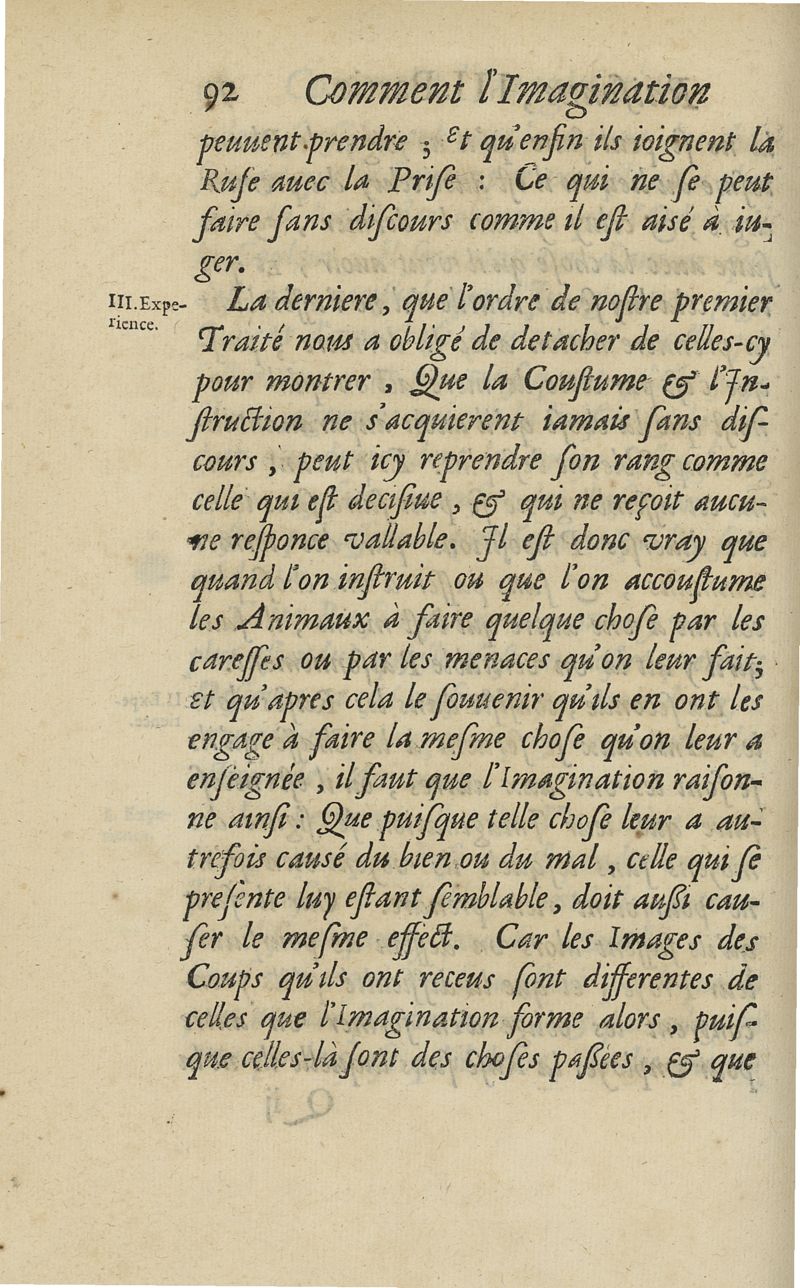 92 Comment l'Imagination
peuuent prendre ; Et qu'enfin ils ioignent la
Ruſe auec la Priſe : Ce qui ne ſe peut
faire ſans diſcours comme il eſt aisé à iu-
ger.
III. Expe-
rience.
La derniere, que l'ordre de noſtre premier
Traité nous a obligé de detacher de celles-cy
pour montrer, Que la Couſtume & l'In-
ſtruction ne s'acquierent iamais ſans diſ-
cours, peut icy reprendre ſon rang comme
celle qui eſt deciſiue, & qui ne reçoit aucu-
ne reſponce vallable. Il eſt donc vray que
quand l'on inſtruit ou que l'on accouſtume
les Animaux à faire quelque choſe par les
careſſes ou par les menaces qu'on leur fait;
Et qu'apres cela le ſouuenir qu'ils en ont les
engage à faire la meſme choſe qu'on leur a
enſeignée, il faut que l'Imagination raiſon-
ne ainſi : Que puiſque telle choſe leur a au-
trefois causé du bien ou du mal, celle qui ſe
preſente luy eſtant ſemblable, doit auſſi cau-
ſer le meſme effect. Car les Images des
Coups qu'ils ont receus ſont differentes de
celles que l'Imagination forme alors, puiſ-
que celles-là ſont des choſes paſſées, & que